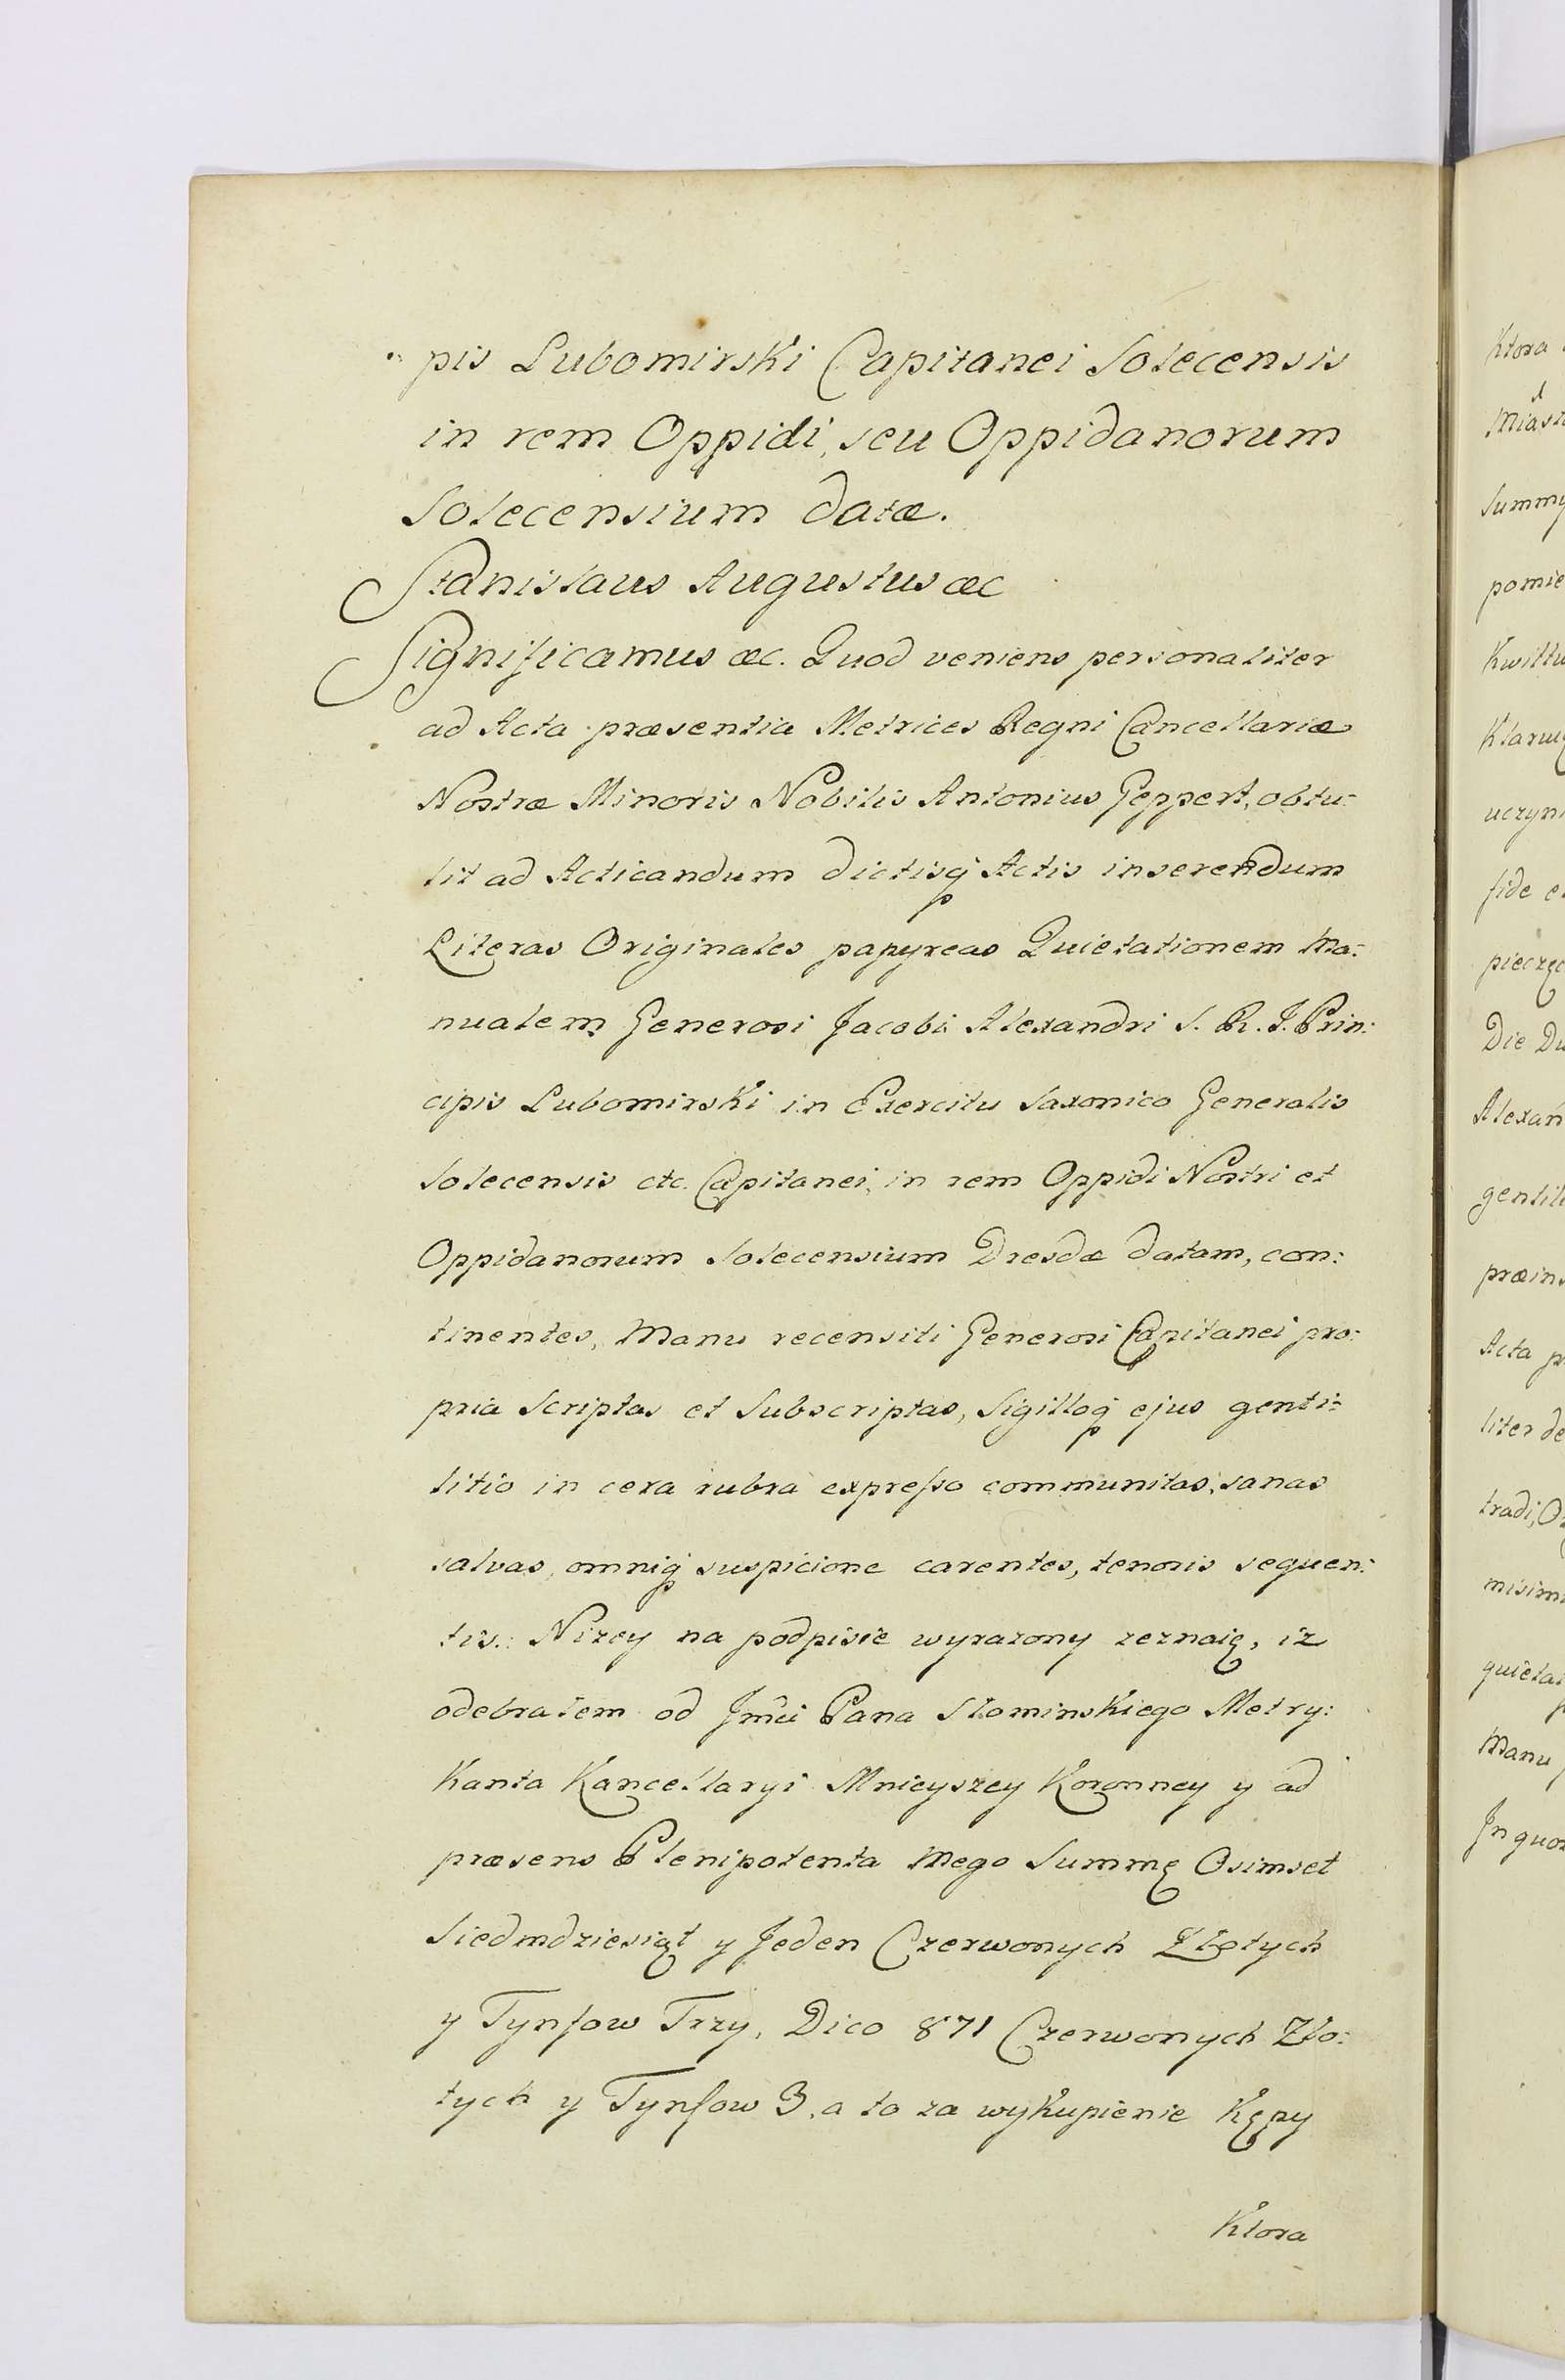 pis Lubomirski Capitanei Solecensis
in rem Oppidi, seu Oppidanorum
Solecensium datæ.
Stanislaus Augustus æc
Significamus æc. Quod veniens personaliter
ad Acta præsentia Metrices Regni Cancellariæ
Nostræ Minoris Nobilis Antonius Geppert, obtu:
lit ad Acticandum dictisq Actis inserendum
Literas Originales papyreas Quietationem Ma:
nualem Generosi Jacobi Alexandri S. R. J. Prin:
cipis Lubomirski in Exercitu Saxonico Generalis
Solecensis etc. Capitanei, in rem Oppidi Nostri et
Oppidanorum Solecensium Dresdæ datam, con:
tinentes, Manu recensiti Generosi Capitanei pro:
pria Scriptas et Subscriptas, Sigilloq ejus genti:
litio in cera rubra expreſso communitas, sanas
salvas, omniq suspicione carentes, tenoris sequen:
tis. Nizey na podpisie wyrazony zeznaię, iz
odebrałem od Jmći Pana Słominskiego Metry:
kanta Kancellaryi Mnieyszey Koronney y ad
præsens Plenipotenta Mego Summę Osimset
Siedmdziesiąt y Jeden Czerwonych Złotych
y Tynſow Trzy, Dico 871 Czerwonych Zło:
tych y Tynſow 3, a to za wykupienie Kępy
Ktora
Ktora
Miast
Summy
pomie
Kwittu
Klaruię
uczyni
fide e
pieczęc
Die Du
Alexan
gentili
præins
Acta p
liter de
tradi, O
misim
quieta
Manu p
In quor